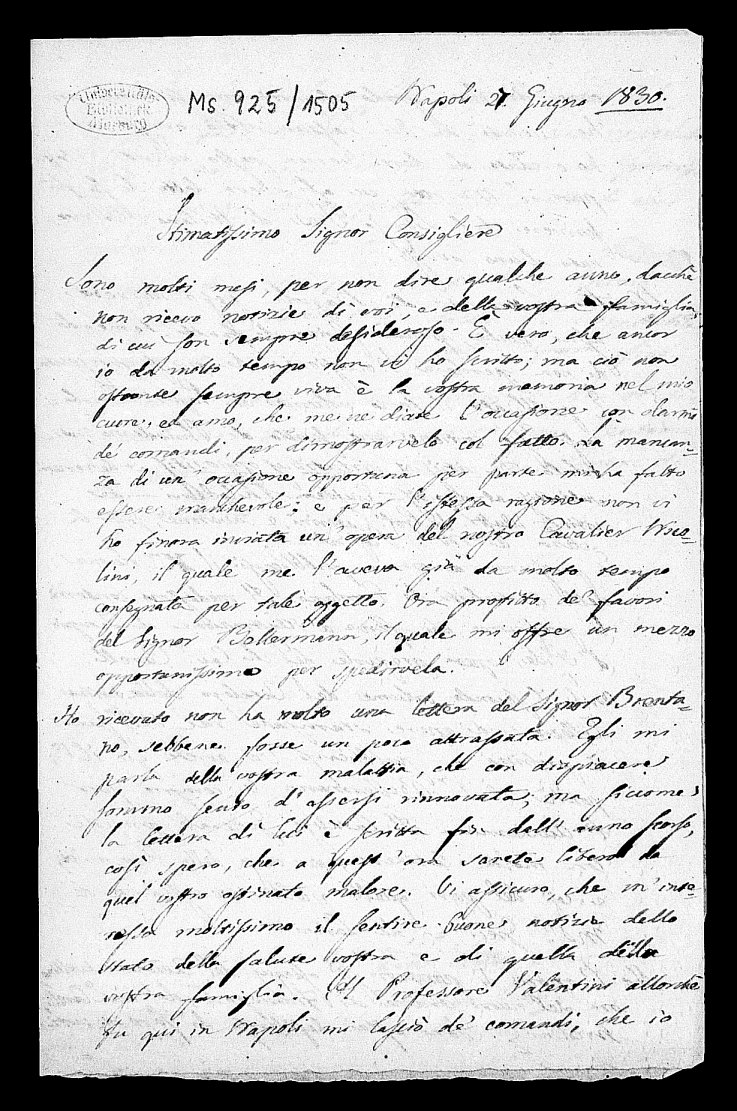 Universitäts-
Bibliothek
Marburg
Ms. 925/1505
Napoli 27. Giugno 1830.
Stimatissimo Signor Consigliere
Sono molti mesi, per non dire qualche anno, dacchè
non ricevo notizie di voi, e della vostra famiglia,
di cui son sempre desideroso. È vero, che ancor
io da molto tempo non vi ho scritto; ma ciò non
ostante sempre viva è la vostra memoria nel mio
cuore, ed amo, che me ne diate l'occasione con darmi
de' comandi, per dimostrarvelo col fatto. La mancan-
za di un' occasione opportuna per parte mia ha fatto
essere manchevole: e per l'istessa razione non vi
ho finora inviata un' opera del nostro Cavalier Nico-
lini, il quale me l'aveva già da molto tempo
consegnata per tale oggetto. Ora profitto de' favori
del Signor Bollermann, il quale mi offre un mezzo
opportunissimo per spedirvela.
Ho ricevuto non ha molto una lettera del Signor Brenta-
no, sebbene fosse un poco attrassata. Egli mi
parla della vostra malattia, che con dispiacere
sommo sento d'assersi rinnovata; ma siccome
la lettera di lui è scritta fin dall' anno scorso,
così spero, che a quest' ora sarete libero da
quel vostro ostinato malore. Vi assicuro, che m'inte-
ressa moltissimo il sentire buone notizie dello
stato della salute vostra e di quella della
vostra famiglia. Il Professore Valentini allorchè
fu qui in Napoli mi lasciò de' comandi, che io